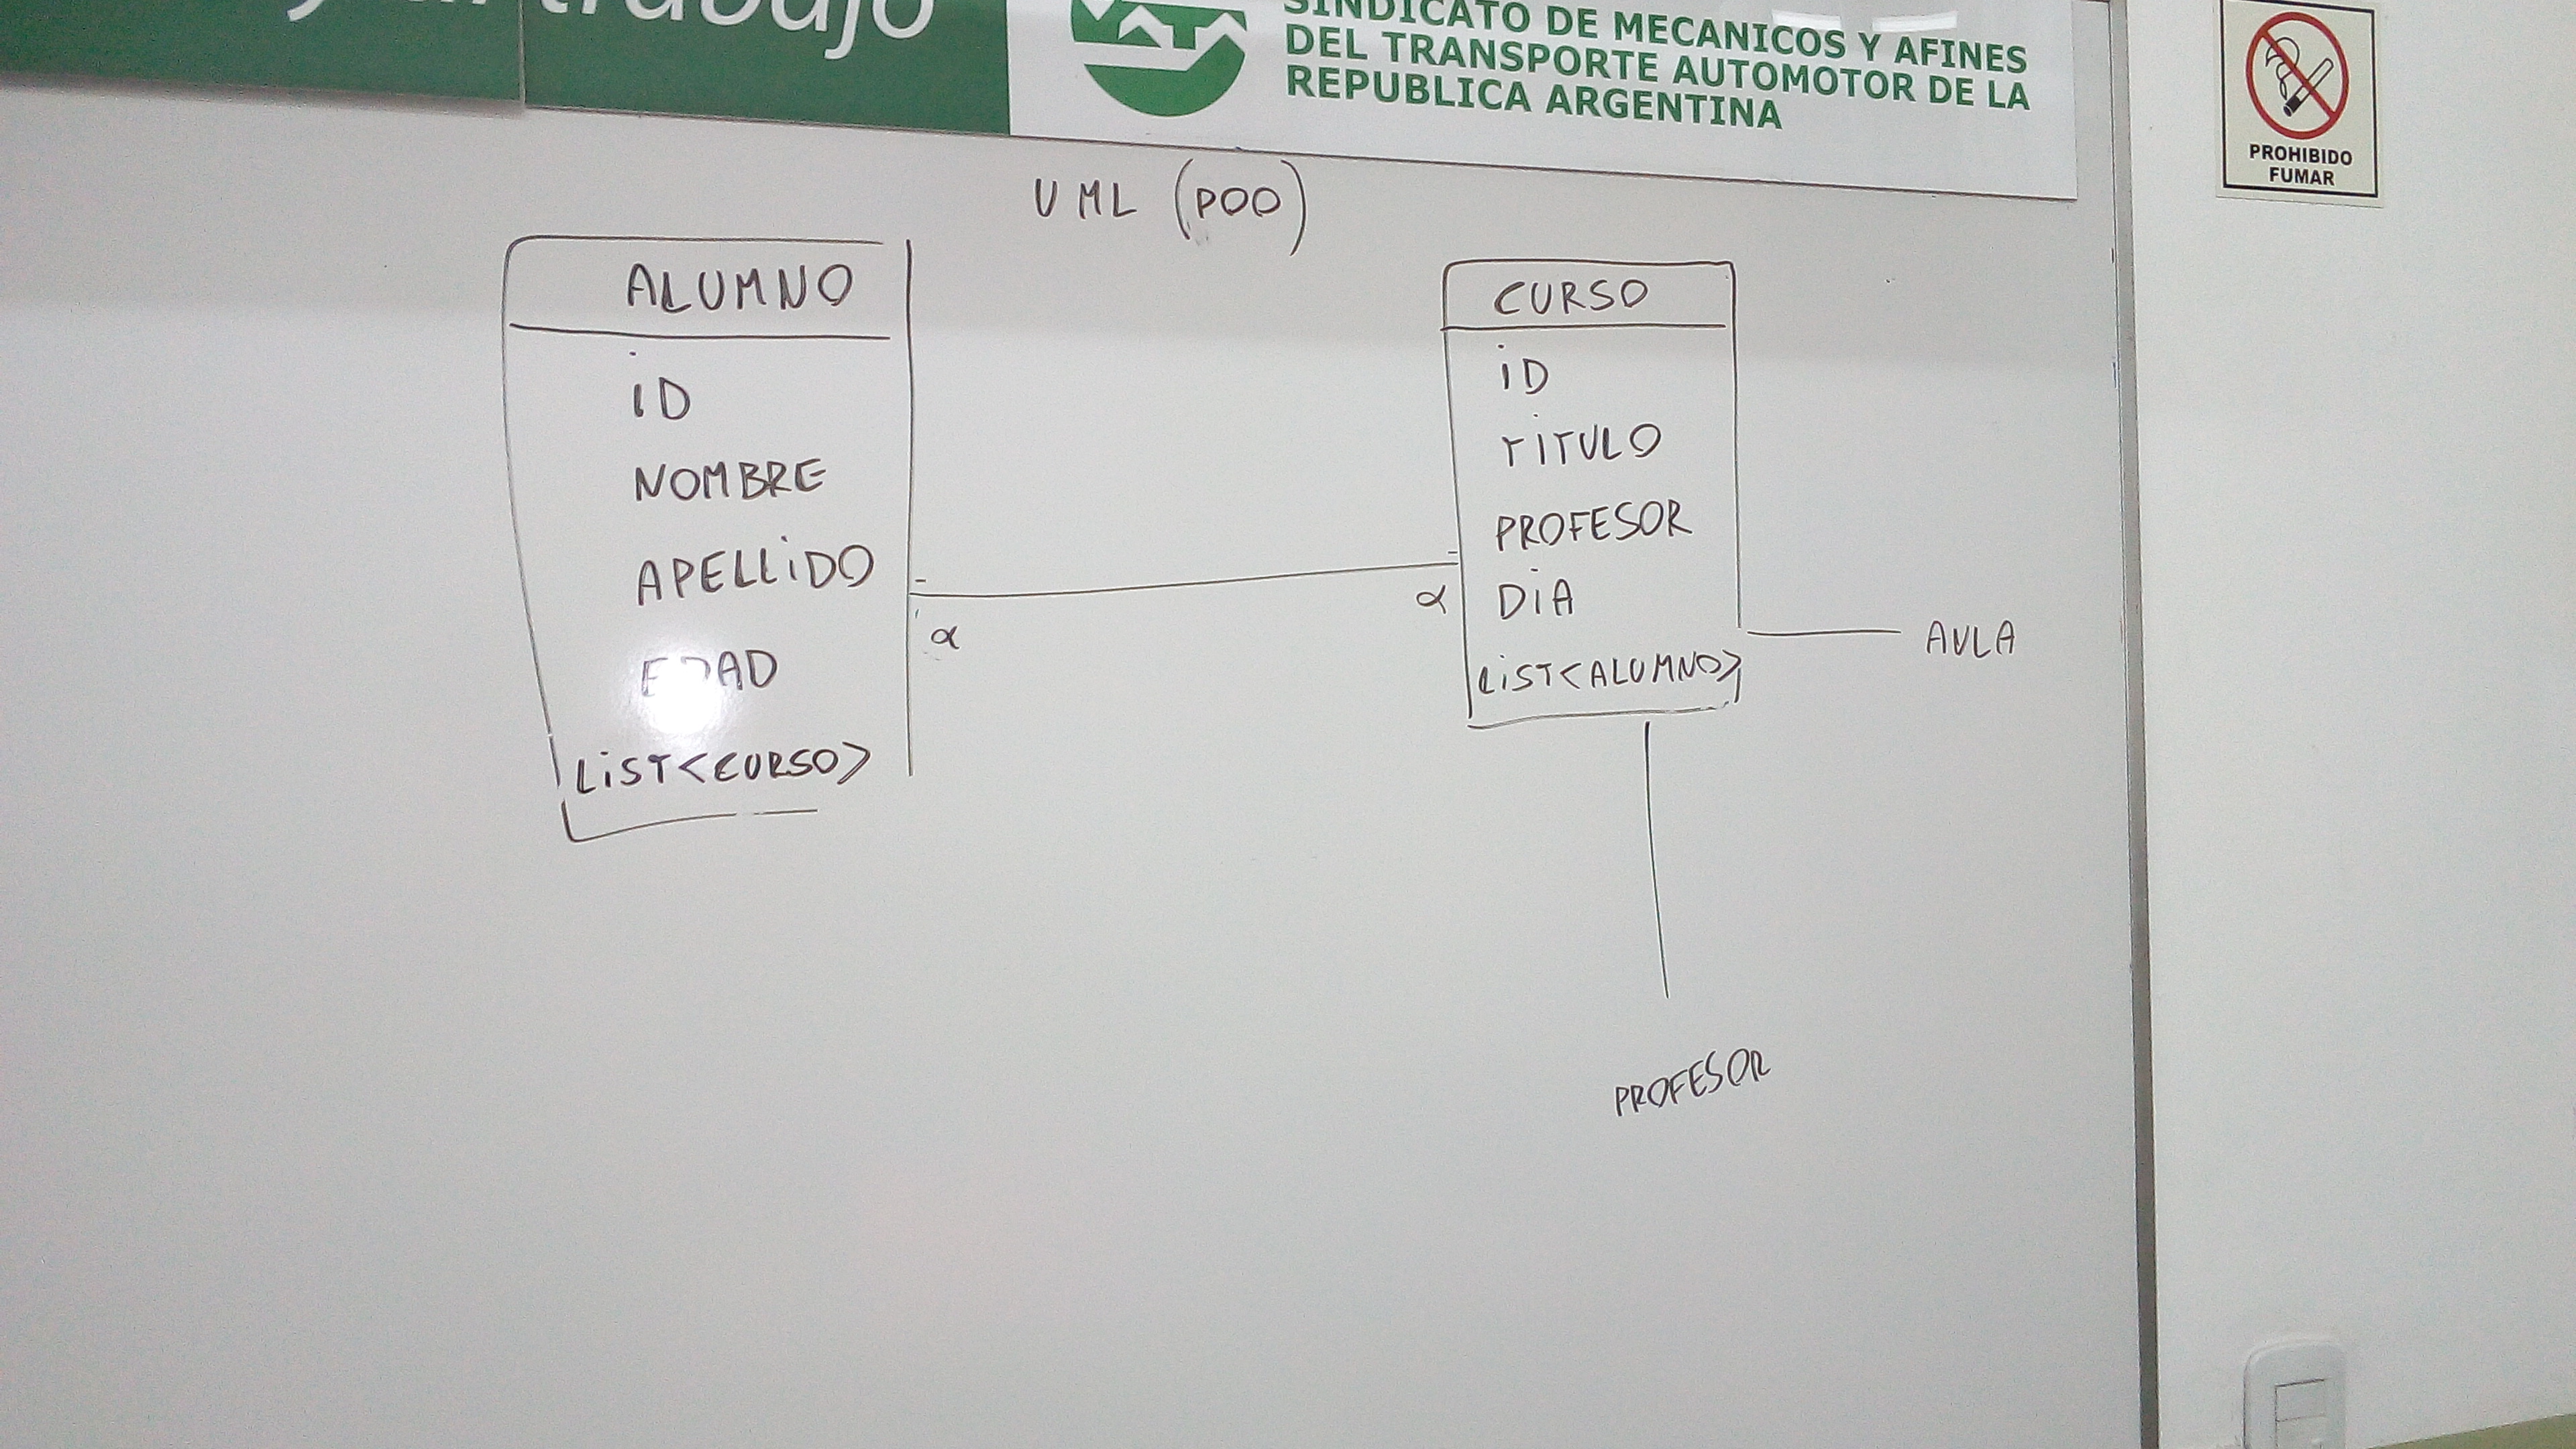 trabajo
SINDICATO DE MECANICOS Y AFINES
DEL TRANSPORTE AUTOMOTOR DE LA
REPUBLICA ARGENTINA
PROHIBIDO
FUMAR
UML (POO)
ALUMNO
ID
NOMBRE
APELLIDO
EDAD
LIST<CURSO>
α
α
CURSO
ID
TITULO
PROFESOR
DIA
LIST<ALUMNO>
AULA
PROFESOR